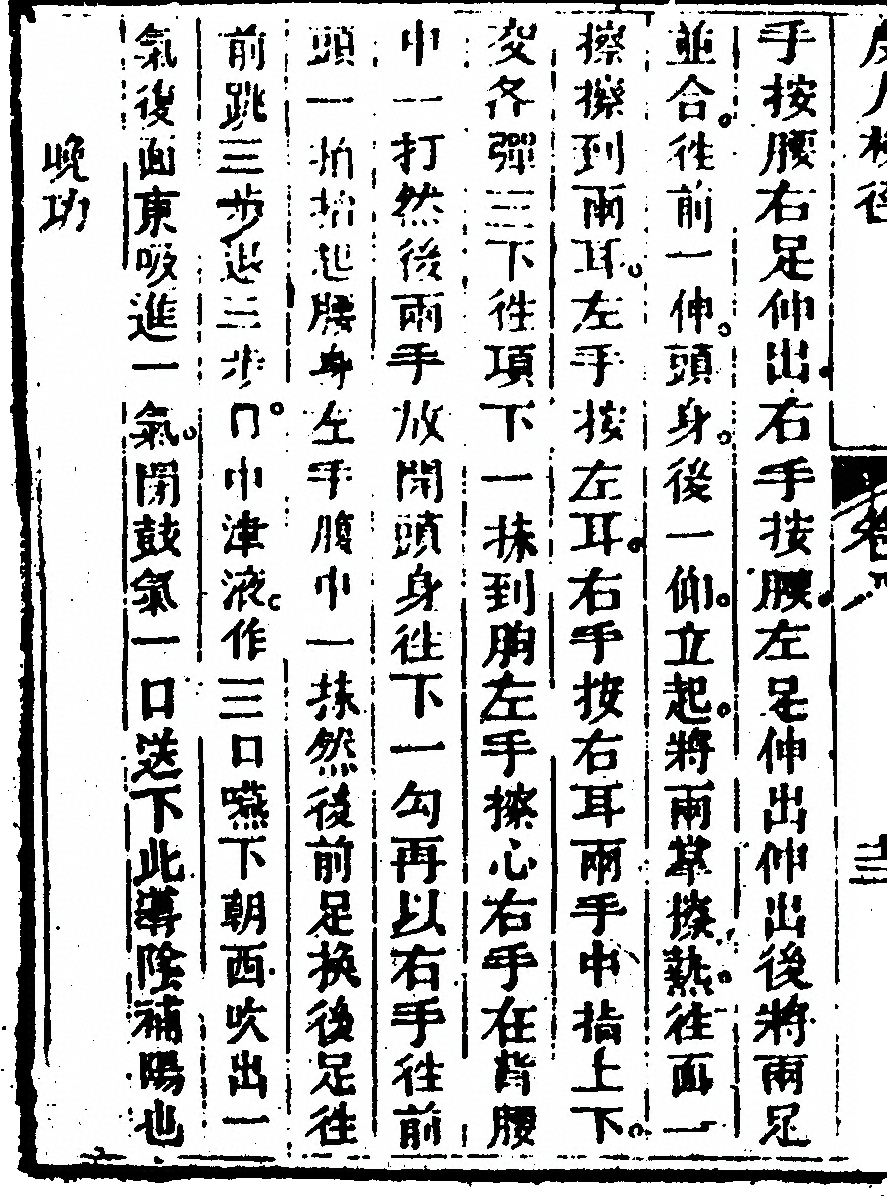 手按腰右足伸出右手按腰左足伸出伸出後將兩足
並合往前一伸頭身後一仰立起將兩掌擦熱往面一
擦擦到兩耳左手按左耳右手按右耳兩手中指上下
交各彈三下往項下一抹到胸左手擦心右手在背腰
中一打然後兩手放開頭身往下一勾再以右手往前
頭一拍拍起腰身左手腹中一抹然後前足换後足往
前跳三步退三步口中津液作三口嚥下朝西吹出一
氣後面東吸進一氣閉鼓氣一口送下此導陰補陽也
晚功